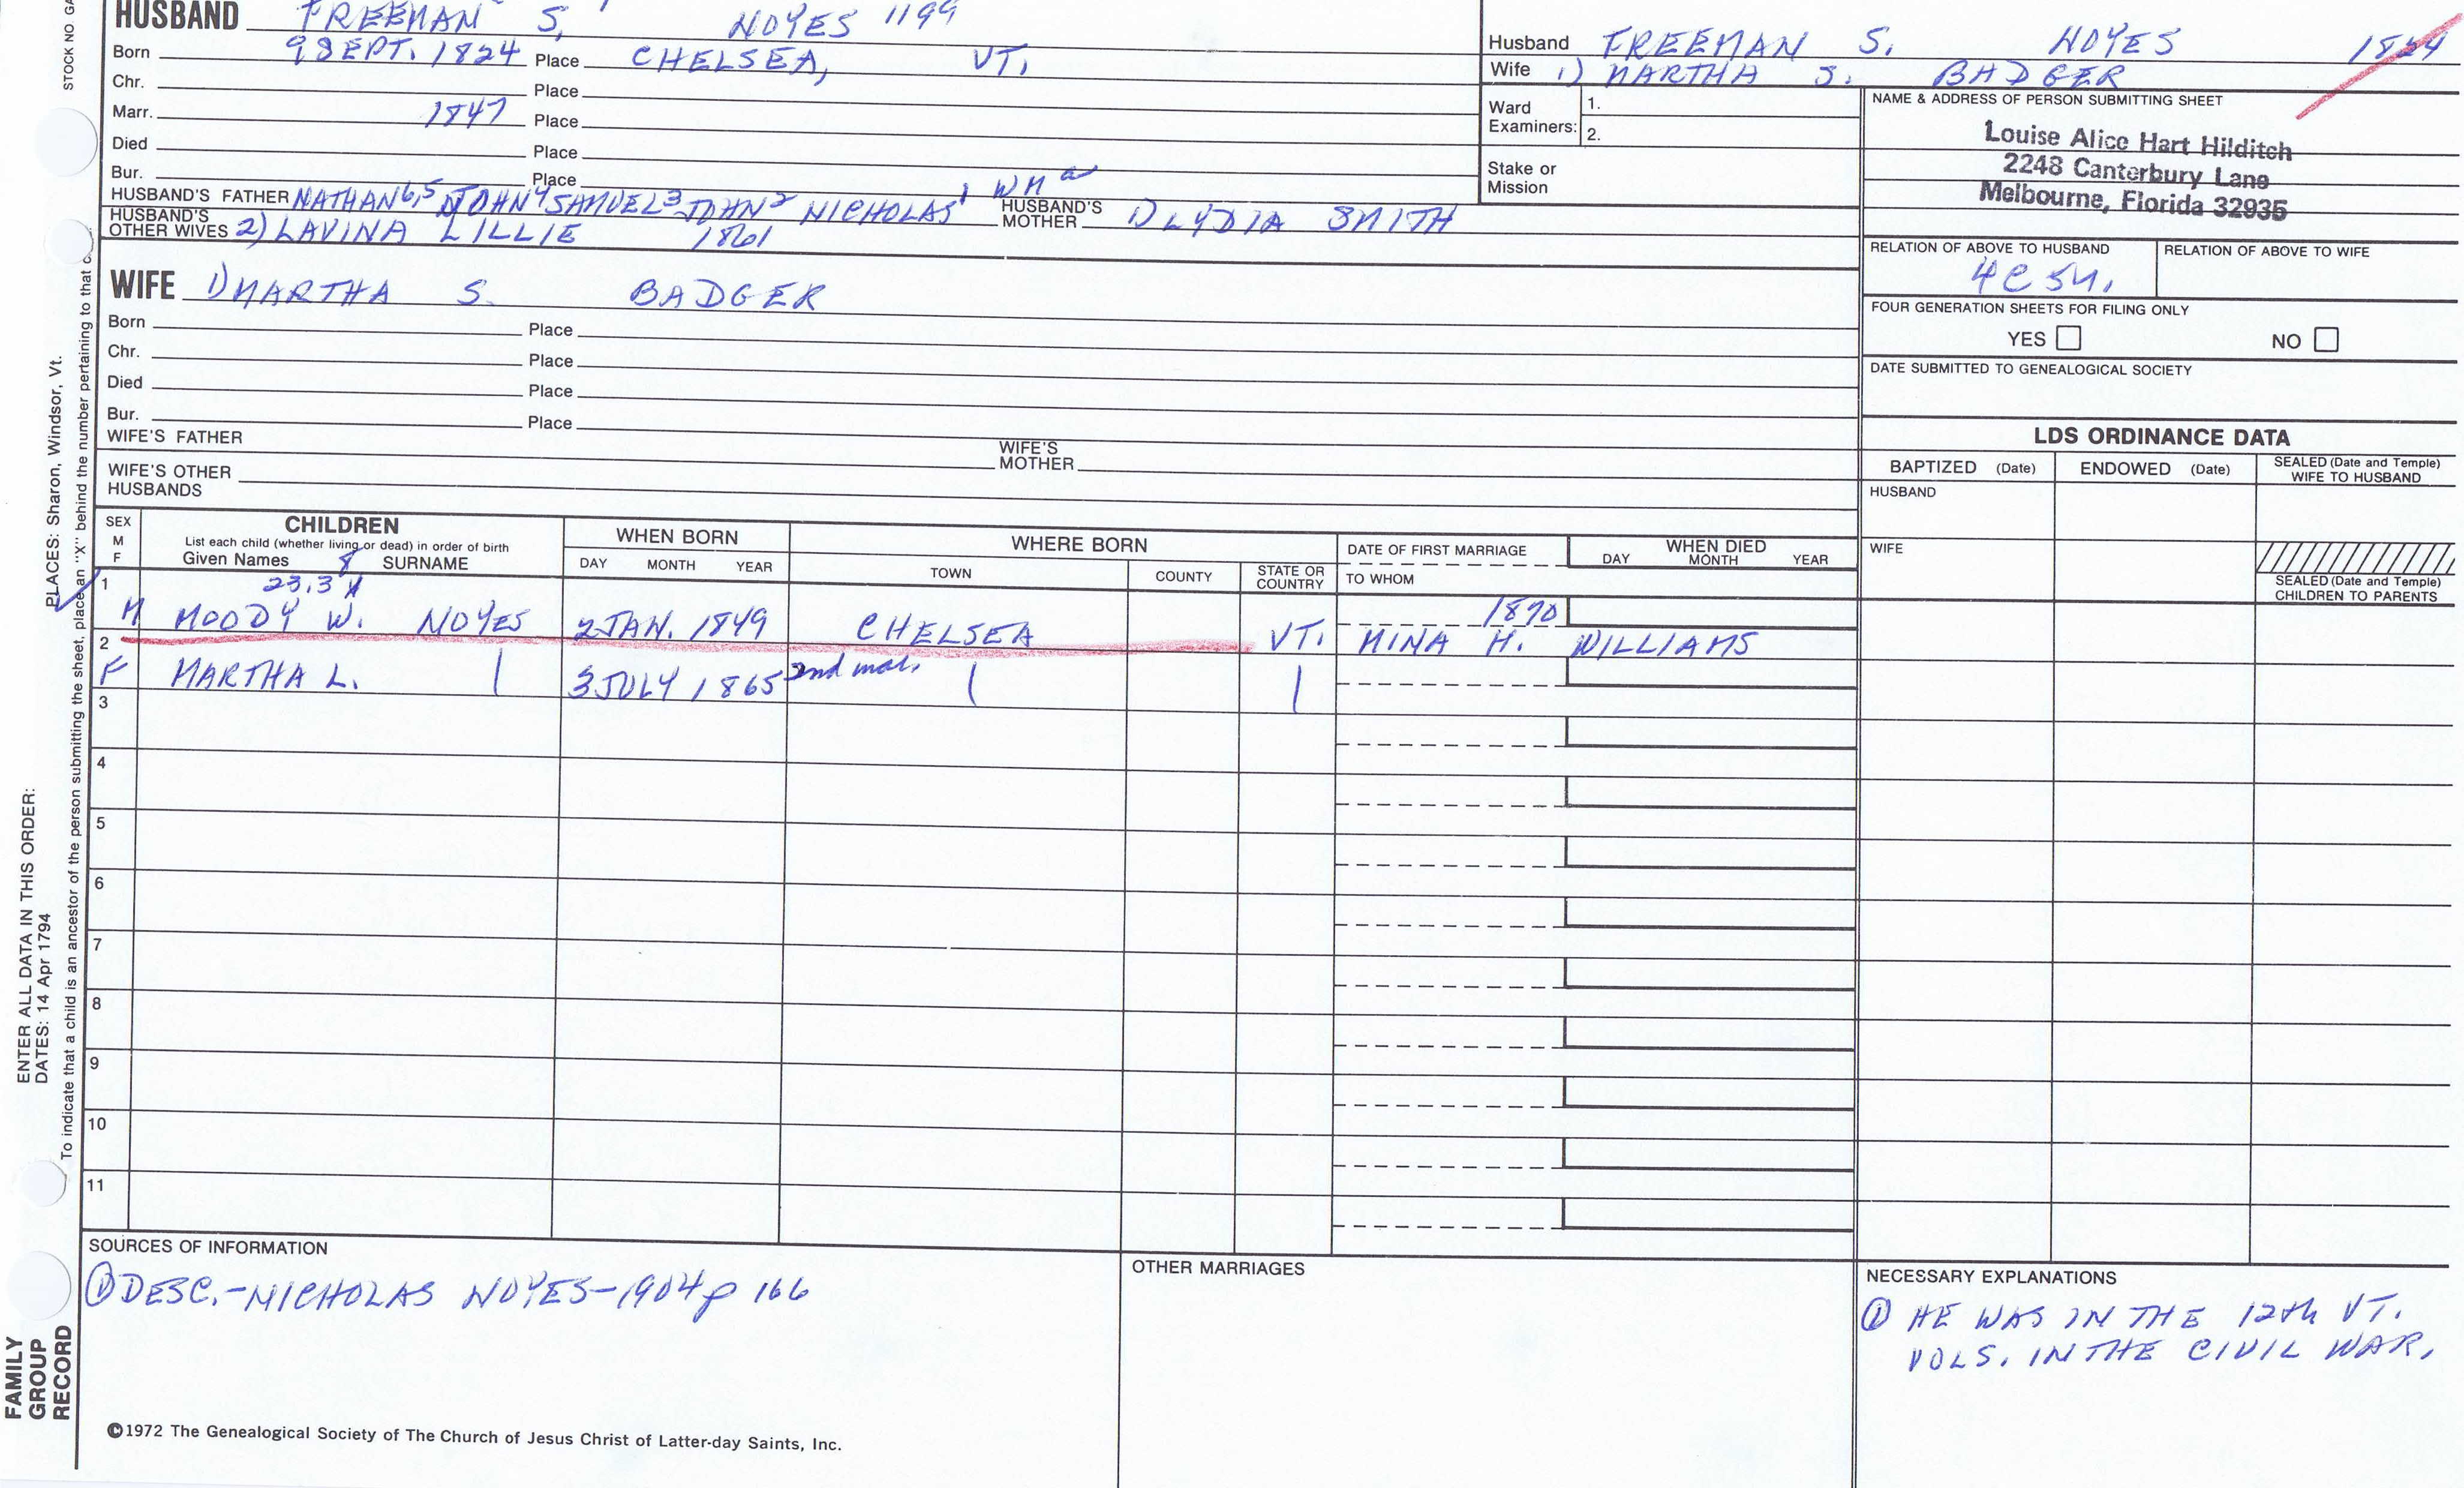 STOCK NO. GA
HUSBAND FREEMAN S. NOYES 1199
Born 9 SEPT. 1824 Place CHELSEA, VT.
Chr. Place
Marr. 1847 Place
Died Place
Bur. Place
HUSBAND'S FATHER NATHAN 6,5 JOHN 4 SAMUEL 3 JOHN 2 NICHOLAS 1 WM a HUSBAND'S MOTHER 1) LYDIA SMITH
HUSBAND'S OTHER WIVES 2) LAVINA LILLIE 1861
WIFE 1) MARTHA S. BADGER
Born Place
Chr. Place
Died Place
Bur. Place
WIFE'S FATHER WIFE'S MOTHER
WIFE'S OTHER HUSBANDS
Husband FREEMAN S. NOYES 1824
Wife 1) MARTHA S. BADGER
Ward Examiners: 1.
2.
Stake or Mission
NAME & ADDRESS OF PERSON SUBMITTING SHEET
Louise Alice Hart Hilditch
2248 Canterbury Lane
Melbourne, Florida 32935
RELATION OF ABOVE TO HUSBAND RELATION OF ABOVE TO WIFE
FOUR GENERATION SHEETS FOR FILING ONLY
YES NO
DATE SUBMITTED TO GENEALOGICAL SOCIETY
LDS ORDINANCE DATA
BAPTIZED (Date) ENDOWED (Date) SEALED (Date and Temple) WIFE TO HUSBAND
HUSBAND
WIFE
SEALED (Date and Temple) CHILDREN TO PARENTS
SEX M F
CHILDREN
List each child (whether living or dead) in order of birth
Given Names SURNAME
WHEN BORN
DAY MONTH YEAR
WHERE BORN
TOWN COUNTY STATE OR COUNTRY
DATE OF FIRST MARRIAGE
TO WHOM
WHEN DIED
DAY MONTH YEAR
8
23,3
1 M MOODY W. NOYES 2 JAN. 1849 CHELSEA VT. 1870 MINA H. WILLIAMS
2 F MARTHA L. | 3 JULY 1865 2nd mar. | |
3
4
5
6
7
8
9
10
11
SOURCES OF INFORMATION
① DESC.-NICHOLAS NOYES-1904 p 166
OTHER MARRIAGES
NECESSARY EXPLANATIONS
① HE WAS IN THE 12th VT.
VOLS. IN THE CIVIL WAR.
©1972 The Genealogical Society of The Church of Jesus Christ of Latter-day Saints, Inc.
FAMILY
GROUP
RECORD
ENTER ALL DATA IN THIS ORDER:
DATES: 14 Apr 1794
PLACES: Sharon, Windsor, Vt.
To indicate that a child is an ancestor of the person submitting the sheet, place an "X" behind the number pertaining to that c